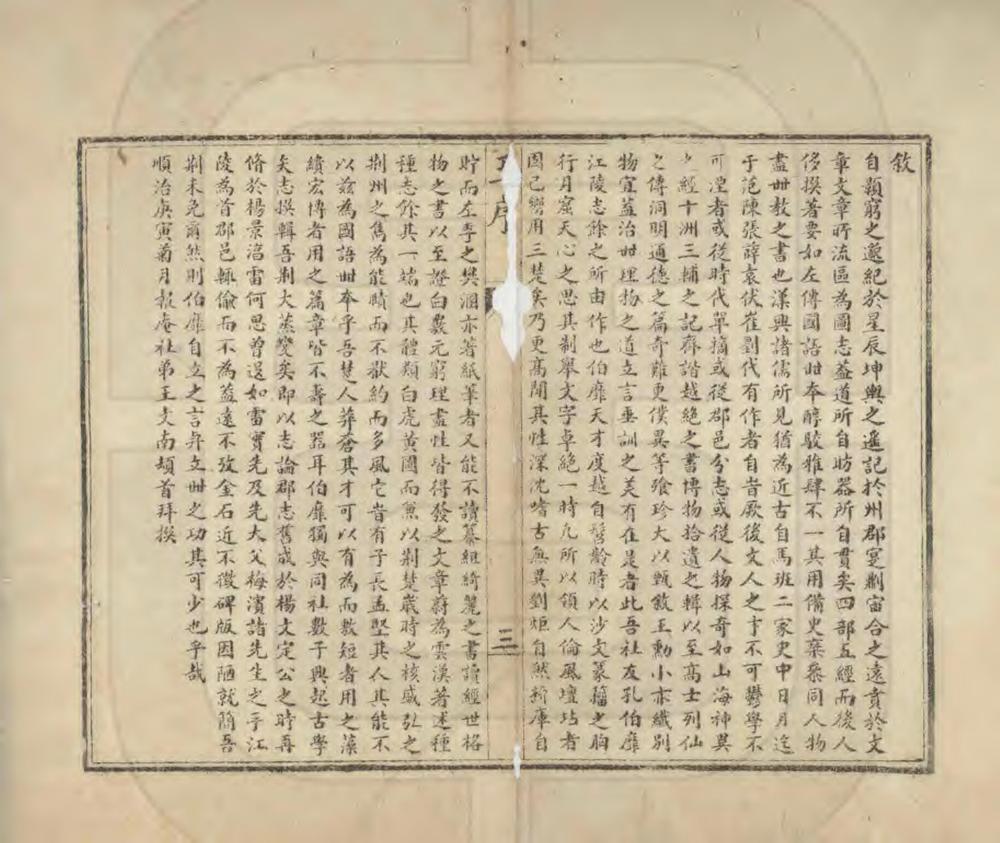 敘
自顥窮之邈紀於星辰坤輿之遥記於州郡寔剙宙合之遠賁於文
章文章所流區為圖志葢道所自昉器所自貫矣四部五經而後人
侈撰著要如左傳國語丗本醇駁雅肆不一其用備史藂粂同人物
盡丗教之書也漢興諸儒所見猶為近古自馬班二家史中日月迄
于范陳張薛袁伏崔劉代有作者自旹厥後文人之才不可鬱學不
可湮者或從時代單摛或從郡邑分志或從人物探奇如山海神異
經十洲三輔之記齊諧越絶之書博物拾遺之輯以至高士列仙
之傳洞明通德之篇奇雖更僕異等飱珍大以甄敘王勳小亦纎别
物宜蓋治丗理物之道立言垂訓之美有在是者此吾社友孔伯靡
江陵志餘之所由作也伯靡天才度越自髫齡時以沙文篆籕之胸
行月窟天心之思其剞舉文字卓絶一時凡所以領人倫風壇坫者
固已嚮用三楚矣乃更髙閒其性深沈嗜古無異劉炬自然新庫自
序
三
貯而左季之樊溷亦著紙筆者又能不讀纂組綺麗之書讀經世格
物之書以至證白褁元窮理盡性皆得發之文章蔚為雲漢著述種
種志餘其一端也其體類白虎黄圖而兼以荆楚歲時之核盛弘之
荆州之雋為能賾而不猒約而多風它旹有子長孟堅其人其能不
以兹為國語丗本乎吾楚人莽蒼其才可以有為而教短者用之藻
繢宏博者用之篇章皆不壽之器耳伯靡獨與同社數子興起古學
矣志撰輯吾荆大蒸變矣即以志論郡志舊成於楊文定公之時再
脩於楊景淊雷何思曽退如雷實先及先大父梅濱諸先生之手江
陵為首郡邑輒偷而不為葢遠不攷金石近不徴碑版因陋就簡吾
荆未免爾然則伯靡自立之言弁立丗之功其可少也乎哉
順治庚寅菊月報庵社弟王文南頓首拜撰